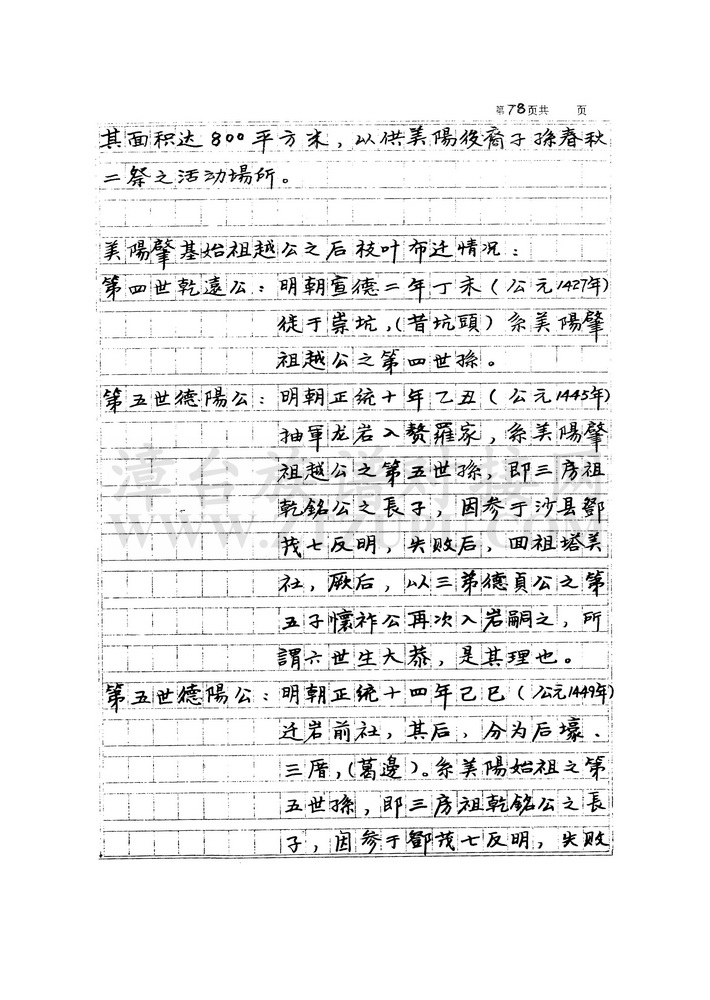 第78页共 页
其面积达800平方米，以供美陽後裔子孫春秋
二祭之活动場所。
美陽肇基始祖越公之后枝叶布迁情况：
第四世乾遠公：明朝宣德二年丁未（公元1427年）
徒于崇坑，（昔坑頭）系美陽肇
祖越公之第四世孫。
第五世德陽公：明朝正统十年乙丑（公元1445年）
抽軍龙岩入赘羅家，系美陽肇
祖越公之第五世孫，即三房祖
乾銘公之長子，因参于沙县鄧
茂七反明，失败后，回祖塔美
社，厥后，以三弟德貞公之第
五子懷祚公再次入岩嗣之，所
謂六世生大恭，是其理也。
第五世德陽公：明朝正统十四年己巳（公元1449年）
迁岩前社，其后，分为后壕、
三厝，（葛邊）。系美陽始祖之第
五世孫，即三房祖乾銘公之長
子，因参于鄧茂七反明，失败
漳台族谱对接网
WWW.ZTZUPU.COM